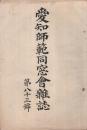 愛知師範同窓會雜誌
第八十三號